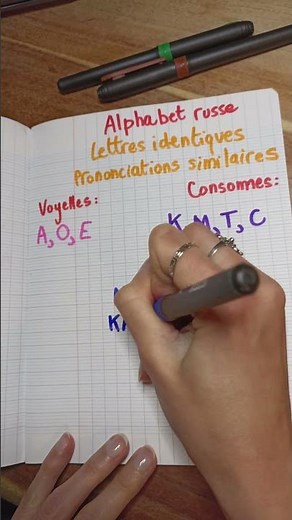 Alphabet russe
Lettres identiques
Prononciations similaires
Voyelles :
Consonnes :
A, O, E
K, M, T, C